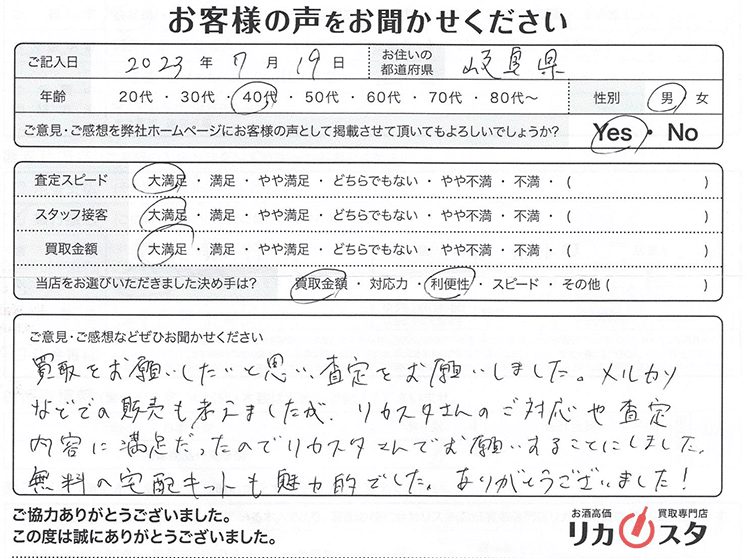 お客様の声をお聞かせください
ご記入日 2023 年 7 月 19 日 お住いの都道府県 岐阜県
年齢 20代 ・ 30代 ・ 40代 ・ 50代 ・ 60代 ・ 70代 ・ 80代〜 性別 男 ・ 女
ご意見・ご感想を弊社ホームページにお客様の声として掲載させて頂いてもよろしいでしょうか? Yes ・ No
査定スピード 大満足 ・ 満足 ・ やや満足 ・ どちらでもない ・ やや不満 ・ 不満 ・ ( )
スタッフ接客 大満足 ・ 満足 ・ やや満足 ・ どちらでもない ・ やや不満 ・ 不満 ・ ( )
買取金額 大満足 ・ 満足 ・ やや満足 ・ どちらでもない ・ やや不満 ・ 不満 ・ ( )
当店をお選びいただきました決め手は? 買取金額 ・ 対応力 ・ 利便性 ・ スピード ・ その他 ( )
ご意見・ご感想などぜひお聞かせください
買取をお願いしたいと思い、査定をお願いしました。メルカリ
などでの販売も考えましたが、リカスタさんのご対応や査定
内容に満足だったのでリカスタさんでお願いすることにしました。
無料の宅配キットも魅力的でした。ありがとうございました!
ご協力ありがとうございました。
この度は誠にありがとうございました。
お酒高価 買取専門店
リカスタ